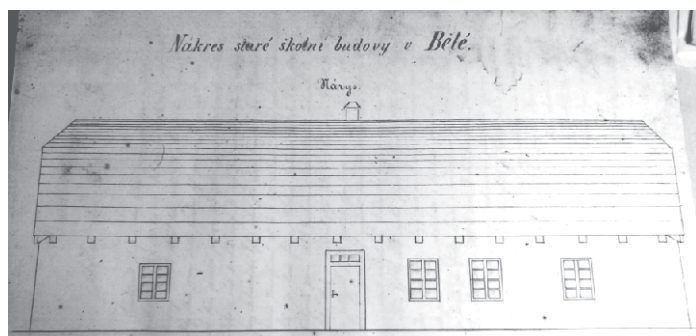 Nákres staré školní budovy v Bělé.
Nárys.